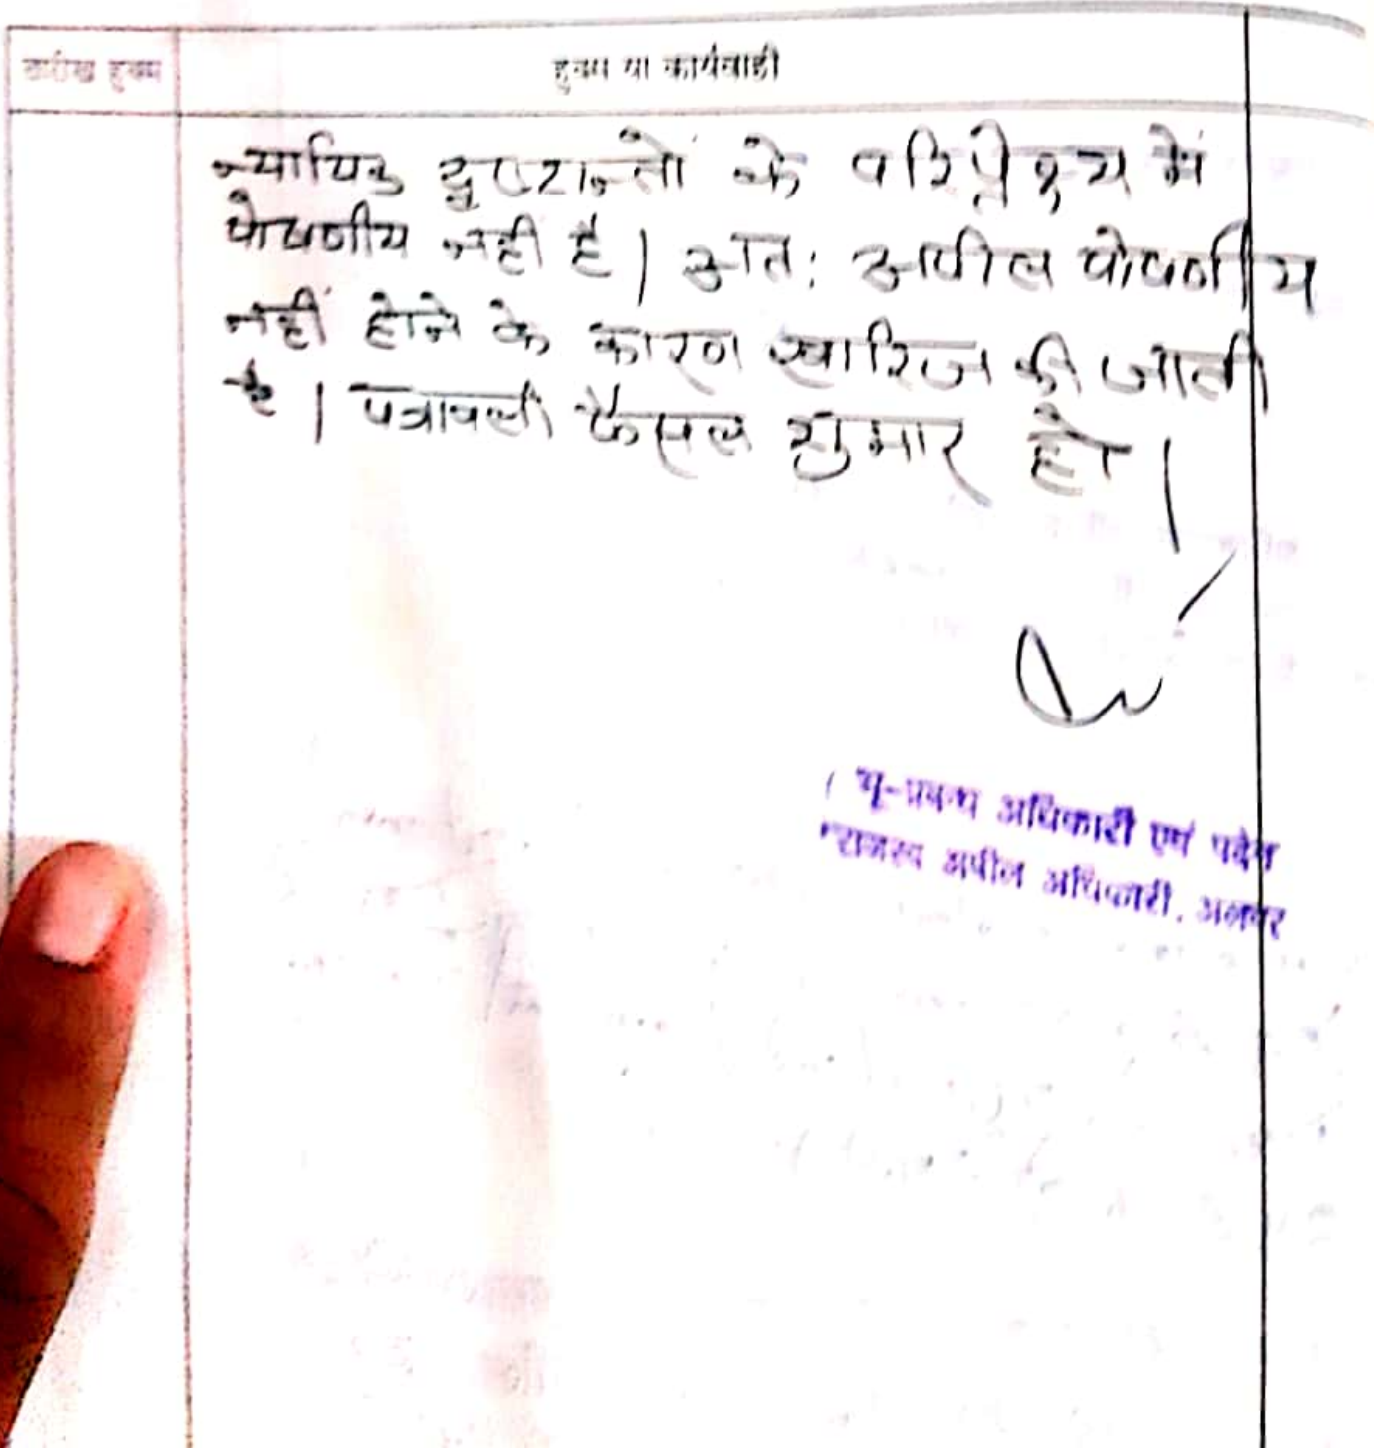 तारीख हुक्म
हुक्म या कार्यवाही
न्यायिक दृष्टान्तों के परिप्रेक्ष्य में
पोषणीय नहीं है | अतः अपील पोषणीय
नहीं होने के कारण खारिज की जाती
है | पत्रावली फैसल शुमार हो |
भू-प्रबन्ध अधिकारी एवं पदेन
राजस्व अपील अधिकारी, अलवर